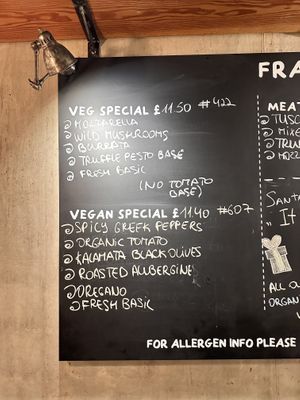 FRA
VEG SPECIAL £11.50 #422
MOZZARELLA
WILD MUSHROOMS
BURRATA
TRUFFLE PESTO BASE
FRESH BASIC
(NO TOMATO
BASE)
VEGAN SPECIAL £11.40 #607
SPICY GREEK PEPPERS
ORGANIC TOMATO
KALAMATA BLACK OLIVES
ROASTED AUBERGINE
OREGANO
FRESH BASIC
MEAT
TUSC
MIXE
TRUF
MOZZ
SANTA
"IT
ALL O
ORGAN
FOR ALLERGEN INFO PLEASE